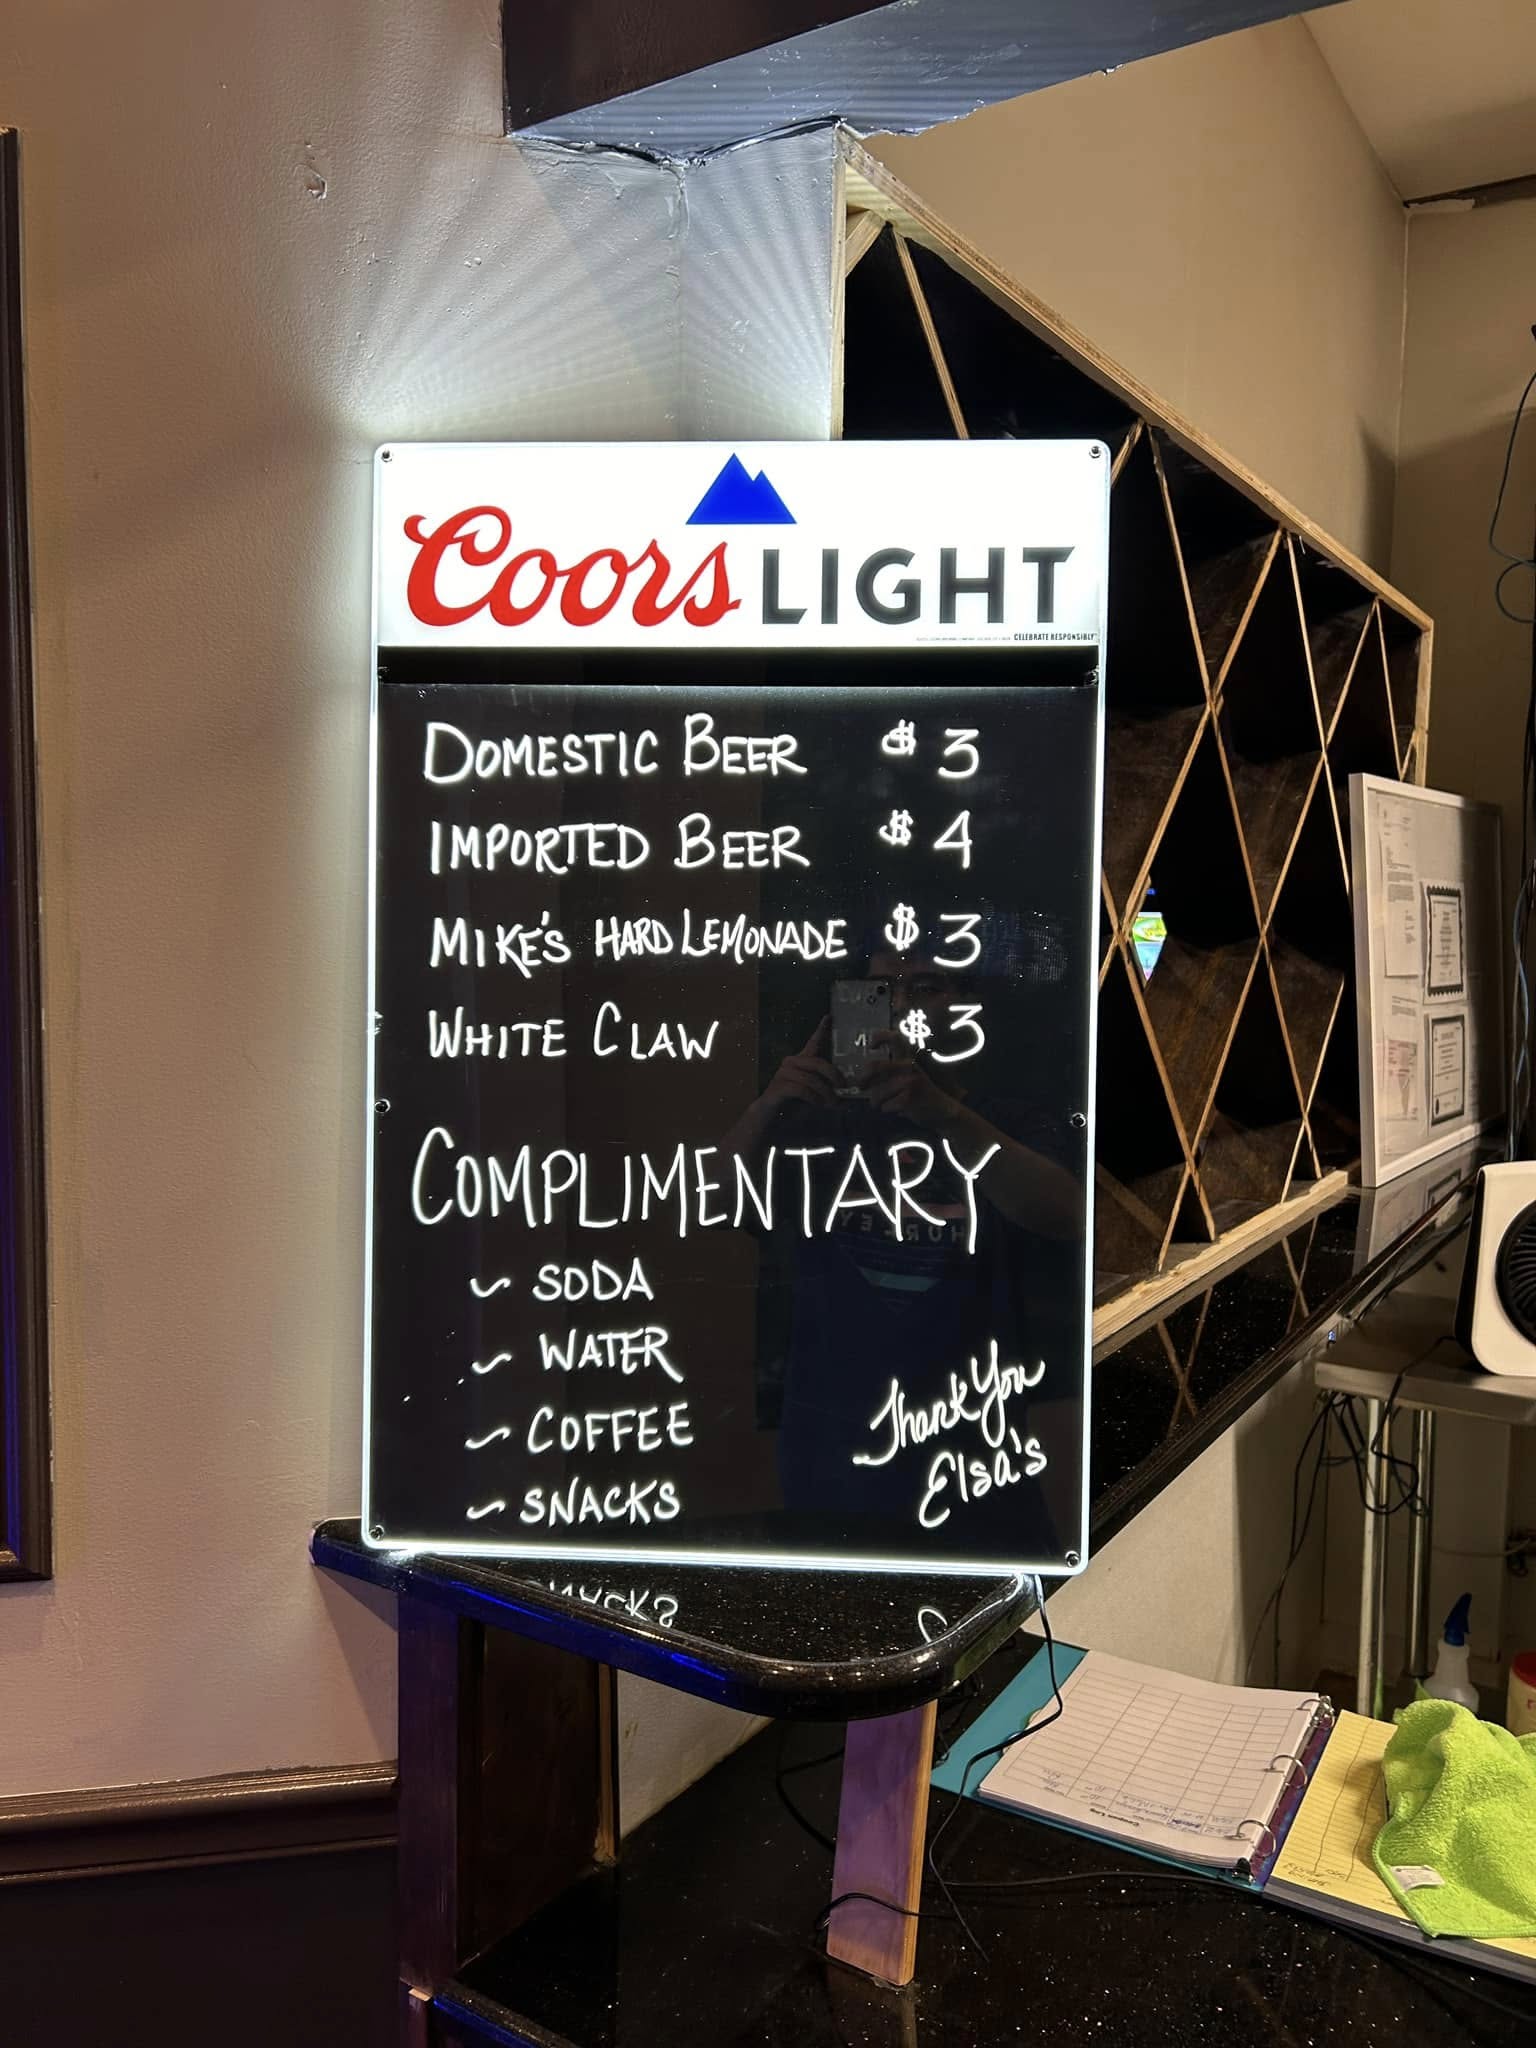 Coors LIGHT
CELEBRATE RESPONSIBLY
DOMESTIC BEER $3
IMPORTED BEER $4
MIKE'S HARD LEMONADE $3
WHITE CLAW $3
COMPLIMENTARY
~ SODA
~ WATER
~ COFFEE
~ SNACKS
Thank You
Elsa's